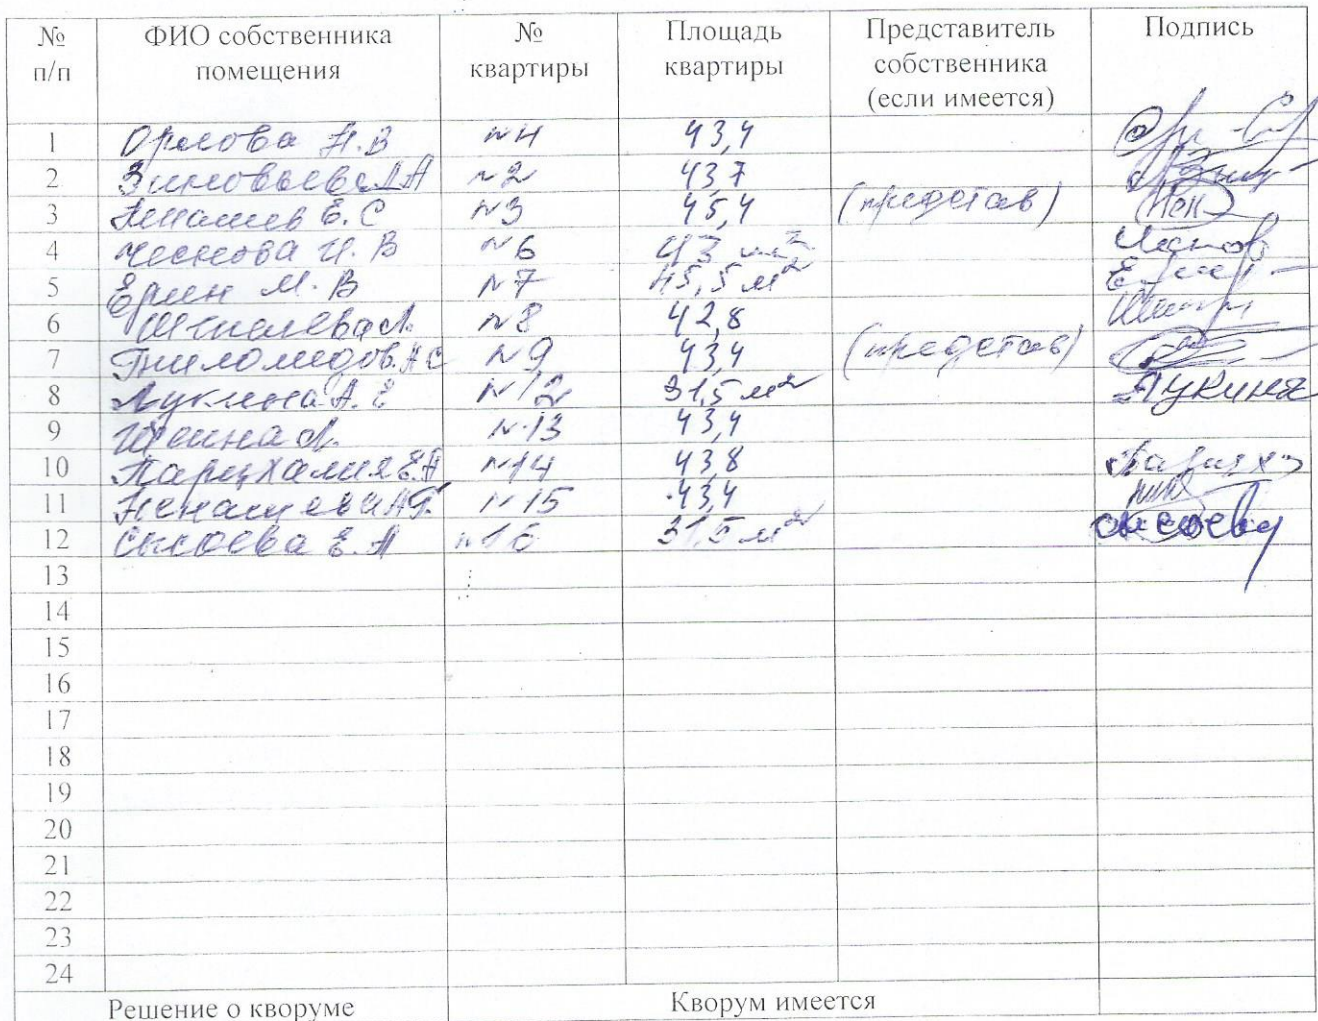 № п/п ФИО собственника помещения № квартиры Площадь квартиры Представитель собственника (если имеется) Подпись
1 Орлова Н.В №4 43,4
2 Зиновьева Л.А №2 43,7
3 Ненашев Е.С №3 45,4 (представ)
4 Чеснова И.В №6 43 м²
5 Ерин М.В №7 45,5 м²
6 №8 42,8
7 №9 43,4 (представ)
8 Лукина А.Е №12 31,5 м² Лукина
9 №13 43,4
10 Парцхалия Е.А №14 43,8
11 Ненашева А.Г. №15 43,4
12 Сысоева Е.А №16 31,5 м² Сысоева
13
14
15
16
17
18
19
20
21
22
23
24
Решение о кворуме Кворум имеется